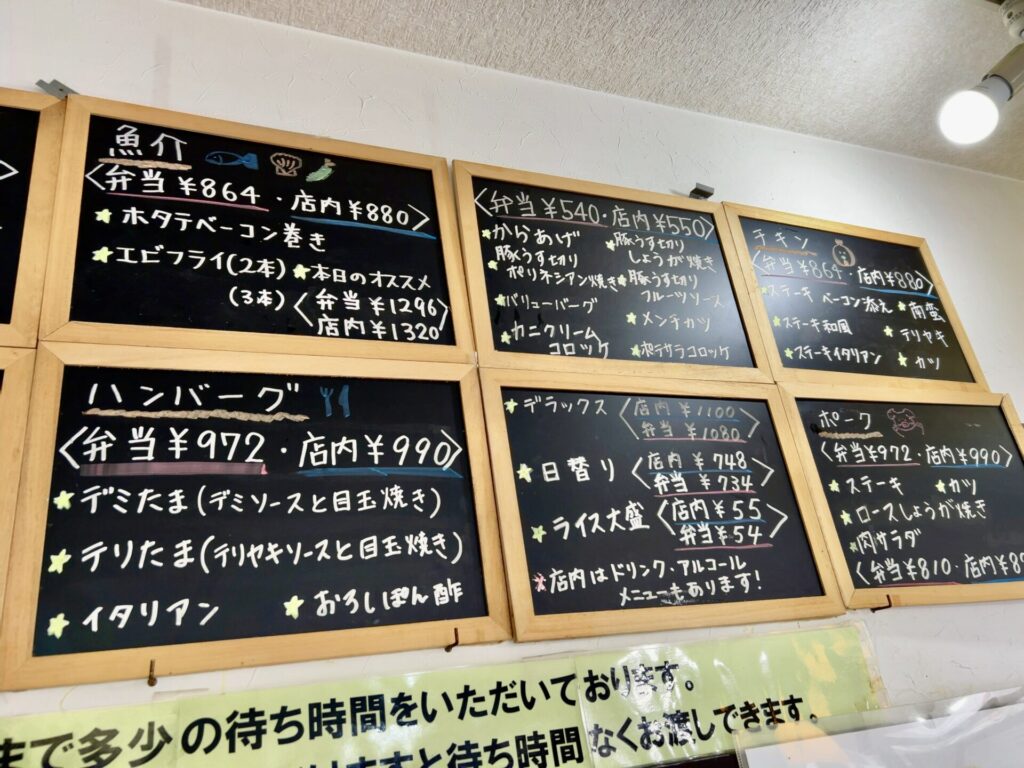 魚介
<弁当¥864・店内¥880>
ホタテベーコン巻き
エビフライ(2本)
本日のオススメ
(3本)<弁当¥1296
店内¥1320>
<弁当¥540・店内¥550>
からあげ
豚うす切り
しょうが焼き
豚うす切り
ポリネシアン焼き
豚うす切り
フルーツソース
バリューバーグ
メンチカツ
カニクリーム
コロッケ
ポテサラコロッケ
チキン
<弁当¥864・店内¥880>
ステーキ ベーコン添え
南蛮
ステーキ和風
テリヤキ
ステーキイタリアン
カツ
ハンバーグ
<弁当¥972・店内¥990>
デミたま(デミソースと目玉焼き)
テリたま(テリヤキソースと目玉焼き)
イタリアン
おろしぽん酢
デラックス<店内¥1100
弁当¥1080>
日替り<店内¥748
弁当¥734>
ライス大盛<店内¥55
弁当¥54>
店内はドリンク・アルコール
メニューもあります!
ポーク
<弁当¥972・店内¥990>
ステーキ
カツ
ロースしょうが焼き
肉サラダ
<弁当¥810・店内¥8
まで多少の待ち時間をいただいております。
ますと待ち時間なくお渡しできます。